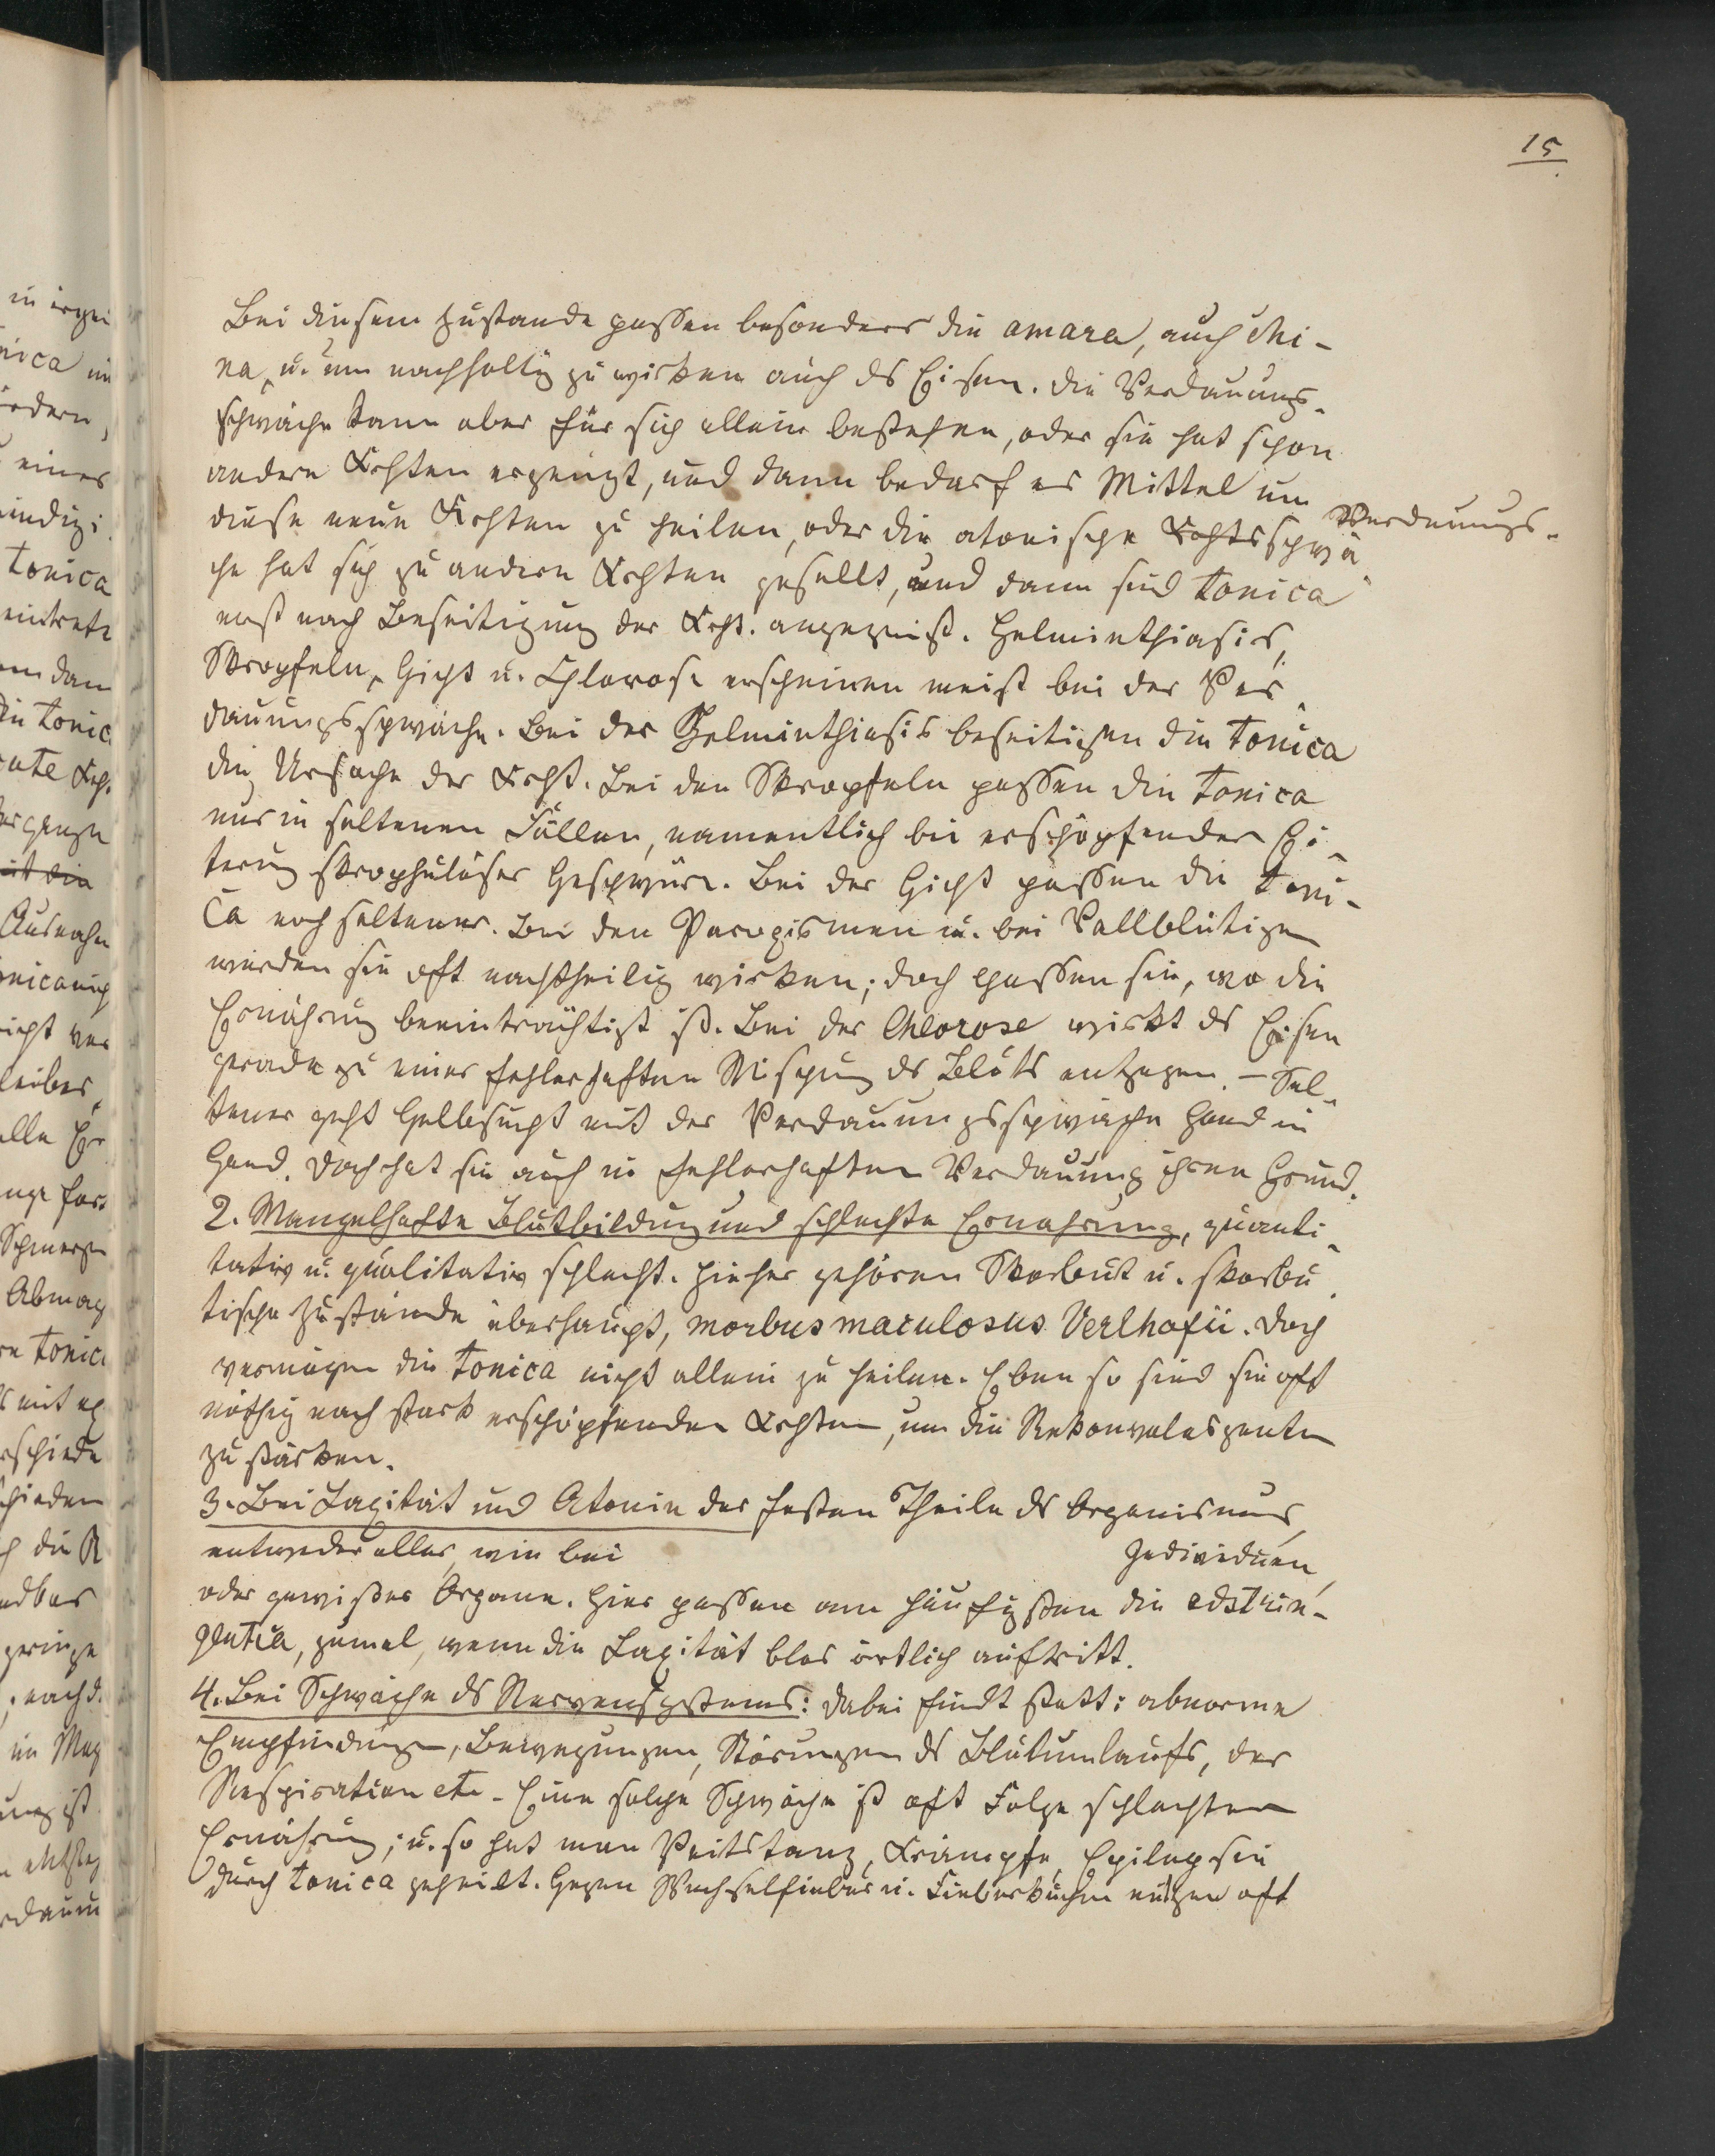 15
Bei diesem Zustande passen besonders die amara, auch Chi-
na, u. um nachhaltig zu wirken auch ds Eisen. Die Verdauungs-
schwäche kann aber für sich allein bestehen, oder sie hat schon
andere Krkhten erzeugt, und dann bedarf es Mittel um
diese neue Krkhten zu heilen, oder die atonische Krkhtsschwä
Verdauungs-
che hat sich zu andern Krkhten gesellt, und dann sind tonica
erst nach Beseitigung der Krkht. angezeigt. Helminthiasis,
Skropfeln, Gicht u. Chlorose erscheinen meist bei der Ver-
dauungsschwäche. Bei der Helminthiasis beseitigen die tonica
die Ursache der Krkht. Bei den Skropfeln passen die tonica
nur in seltenen Fällen, namentlich bei erschöpfender Ei-
terung skrophulöser Geschwüre. Bei der Gicht passen die toni-
ca noch seltener. Bei den Paroxismen u. bei Vollblütigen
werden sie oft nachtheilig wirken; doch passen sie, wo die
Ernährung beeinträchtigt ist. Bei der Chlorose wirkt ds Eisen
gerade zu einer fehlerhaften Mischung ds Bluts entgegen. – Sel-
tener geht Gelbsucht mit der Verdauungsschwäche Hand in
Hand. Doch hat sie auch in fehlerhafter Verdauung ihren Grund.
2. Mangelhafte Blutbildung und schlechte Ernährung, quanti-
tativ u. qualitativ schlecht. Hieher gehören Skorbut u. skorbu-
tische Zustände überhaupt, morbus maculosus Verlhofii. Doch
vermögen die tonica nicht allein zu heilen. Eben so sind sie oft
nöthig nach stark erschöpfenden Krkhten, um die Rekonvaleszenten
zu stärken.
3. Bei Laxität und Atonie der festen Theile ds Organismus,
entweder aller, wie bei Individuen,
oder gewisser Organe. Hier passen am häufigsten die adstrin-
gentia, zumal, wenn die Laxität blos örtlich auftritt.
4. Bei Schwäche ds Nervensystems: dabei findt statt: abnorme
Empfindungen, Bewegungen, Störungen ds Blutumlaufs, der
Respiration etc. Eine solche Schwäche ist oft Folge schlechter
Ernährung; u. so hat man Veitstanz, Krämpfe, Epilepsie
durch tonica geheilt. Gegen Wechselfieber u. Fieberkuchen nützen oft